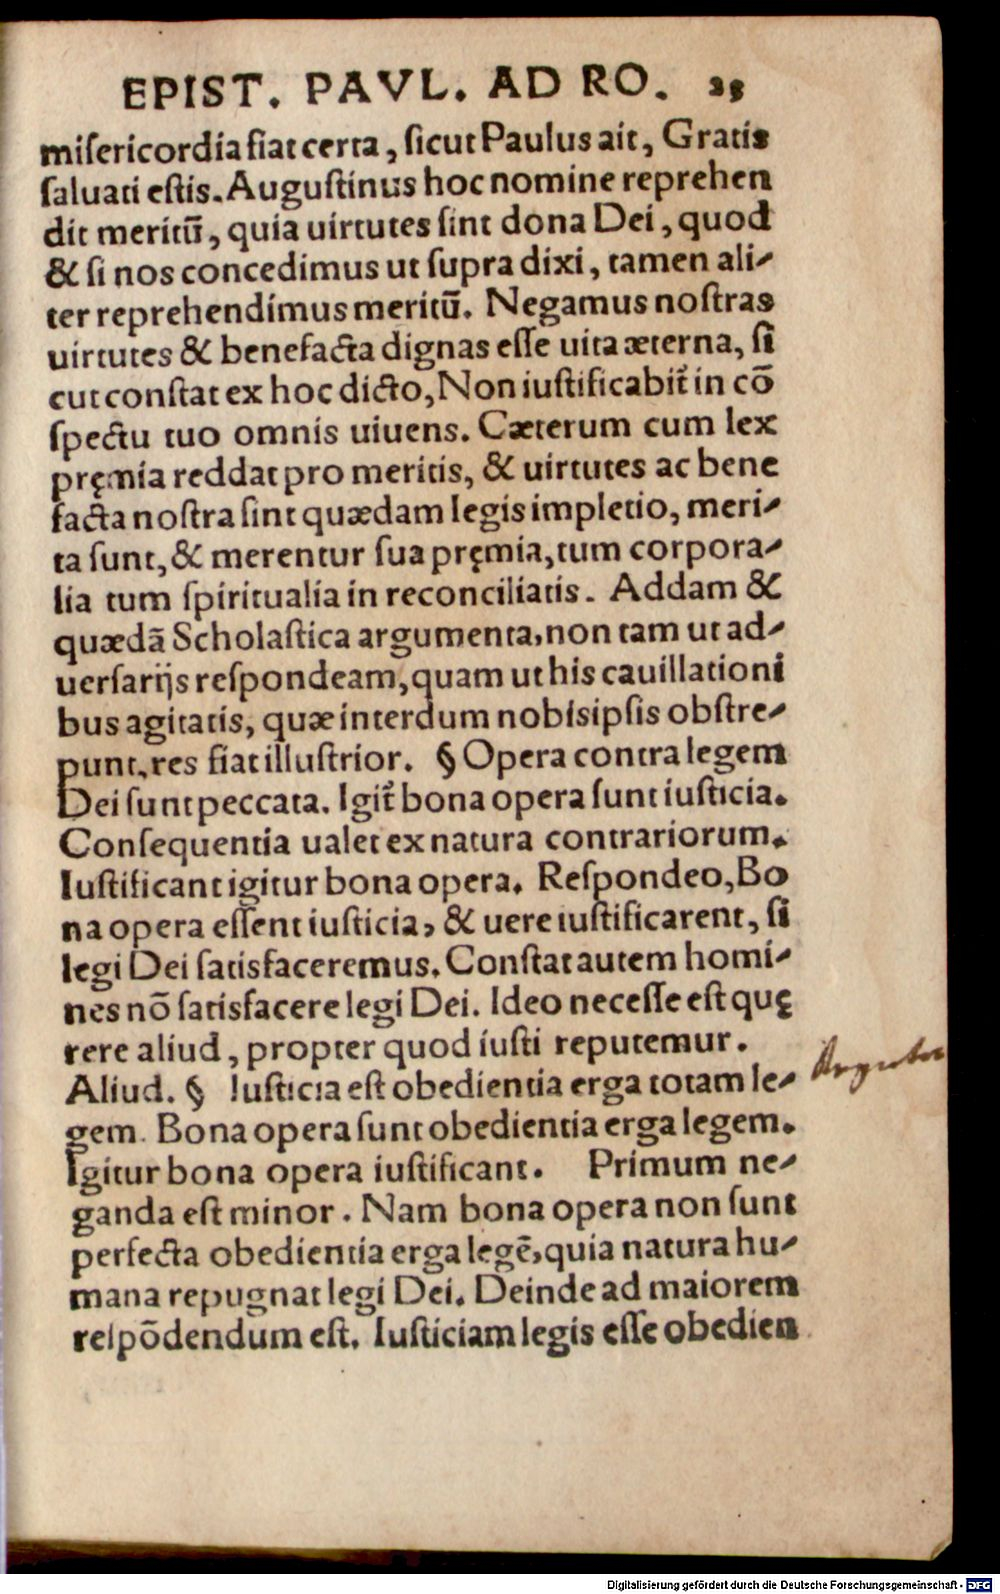 EPIST. PAVL. AD RO. 25
miſericordia fiat certa, ſicut Paulus ait, Gratis
ſaluati eſtis. Auguſtinus hoc nomine reprehen
dit meritū, quia uirtutes ſint dona Dei, quod
& ſi nos concedimus ut ſupra dixi, tamen ali-
ter reprehendimus meritū. Negamus noſtras
uirtutes & benefacta dignas eſſe uita æterna, ſi
cut conſtat ex hoc dicto, Non iuſtificabit᷑ in cō
ſpectu tuo omnis uiuens. Cæterum cum lex
pręmia reddat pro meritis, & uirtutes ac bene
facta noſtra ſint quædam legis impletio, meri-
ta ſunt, & merentur ſua pręmia, tum corpora-
lia tum ſpiritualia in reconciliatis. Addam &
quædā Scholaſtica argumenta, non tam ut ad-
uerſarijs reſpondeam, quam ut his cauillationi
bus agitatis, quæ interdum nobisipſis obſtre-
punt, res fiat illuſtrior. § Opera contra legem
Dei ſunt peccata. Igit᷑ bona opera ſunt iuſticia.
Conſequentia ualet ex natura contrariorum.
Iuſtificant igitur bona opera. Reſpondeo, Bo
na opera eſſent iuſticia, & uere iuſtificarent, ſi
legi Dei ſatisfaceremus. Conſtat autem homi-
nes nō ſatisfacere legi Dei. Ideo neceſſe eſt quę
rere aliud, propter quod iuſti reputemur.
Aliud. § Iuſticia eſt obedientia erga totam le-
gem. Bona opera ſunt obedientia erga legem.
Igitur bona opera iuſtificant. Primum ne-
ganda eſt minor. Nam bona opera non ſunt
perfecta obedientia erga legē, quia natura hu-
mana repugnat legi Dei. Deinde ad maiorem
reſpōdendum eſt. Iuſticiam legis eſſe obedien
Digitalisierung gefördert durch die Deutsche Forschungsgemeinschaft - DFG